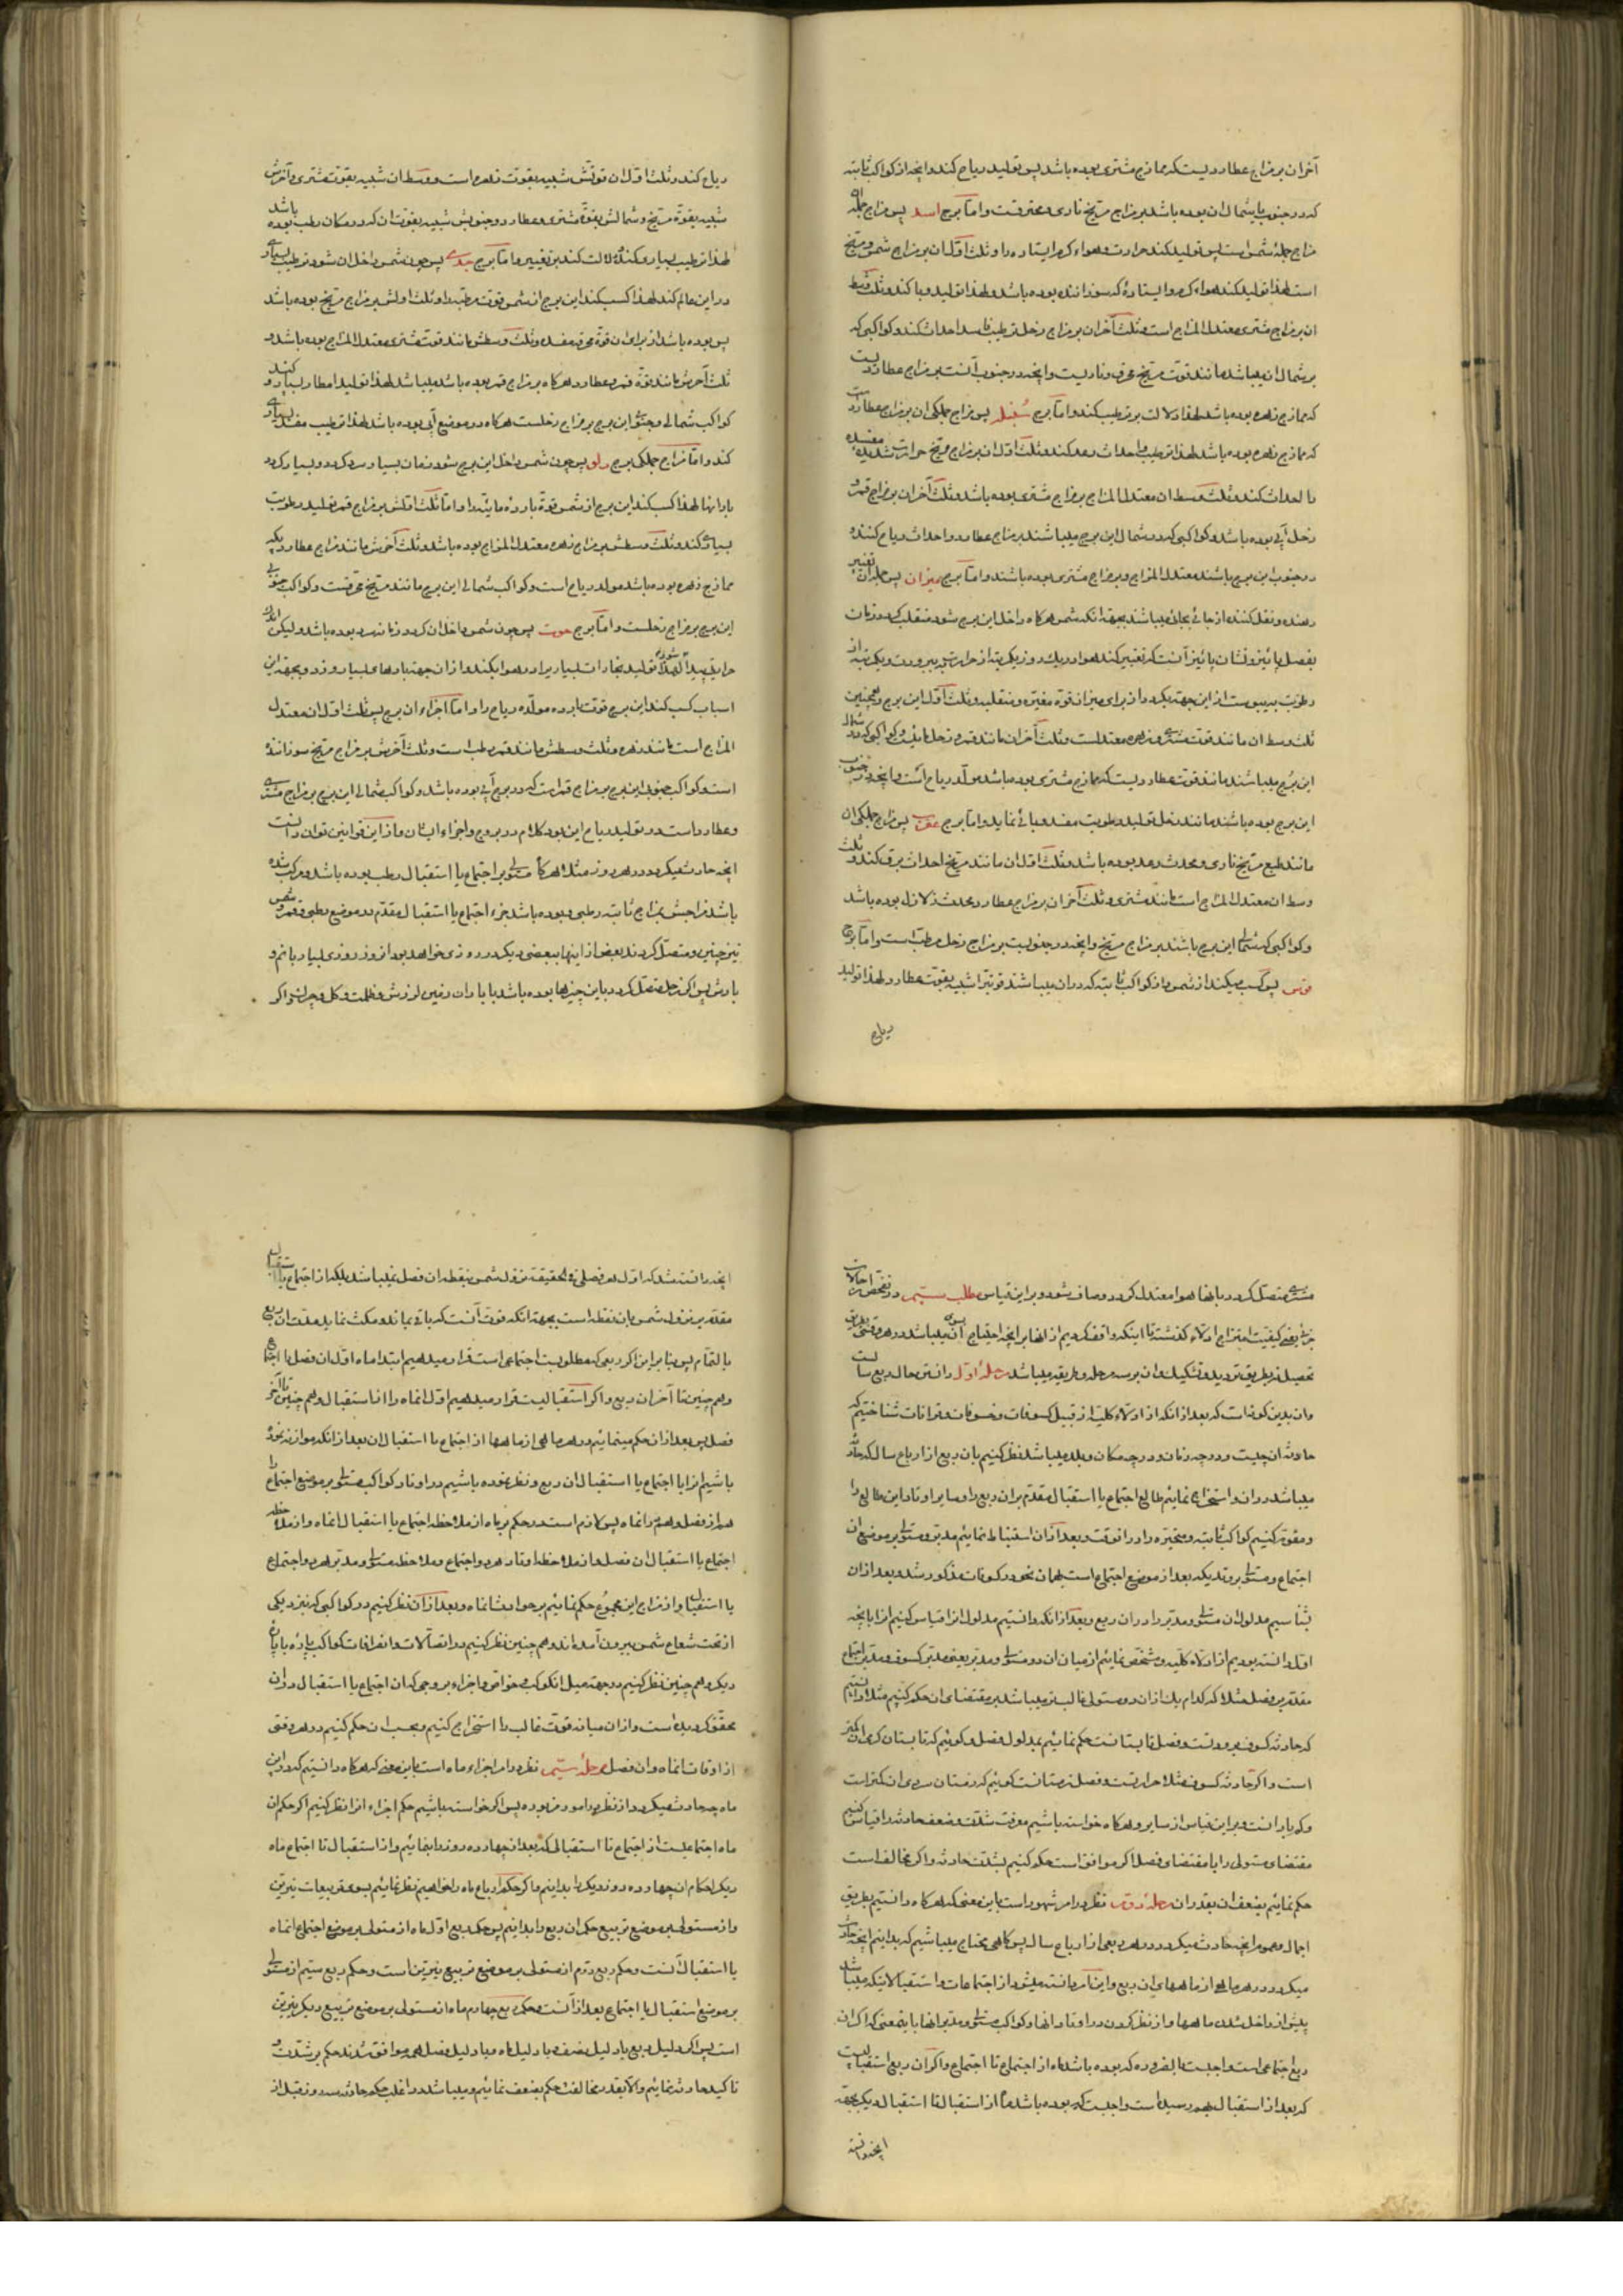 آخر ان بر مزاج عطارديست كه ممازج مشترى بوده باشد پس توليد رياح كند و آنچه از كواكب ثابته
كه در جنوب يا شمال ان بوده باشد بر مزاج مريخ نارى و محترقست و امّا برج اسد پس مزاج جمله
مزاج جمله شمس است پس توليد كند حرارت و هواء كرم ايستاده را و ثلث اوّل ان بر مزاج شمس و مريخ
است لهذا توليد كند هواء كرم و ايستاده كه سوزاننده بوده باشد و لهذا توليد وبا كند و ثلث وسط
ان بر مزاج مشترى معتدل المزاج است و ثلث آخر ان بر مزاج زحل ترطيب فاسد احداث كند و كواكبى كه
بر شمال ان ميباشد مانند قوت مريخ محرق و ناريست و آنچه در جنوب آنست بر مزاج عطارديست
كه ممازج زهره بوده باشد لهذا دلالت بر ترطيب كند و امّا برج سنبله پس مزاج جملكى ان بر مزاج عطارد
كه ممازج زهره بوده باشد لهذا ترطيب و احداث رعد كند و ثلث اوّل ان بر مزاج مريخ حرارت شديده مفسده
را احداث كند و ثلث وسط ان معتدل المزاج بر مزاج مشترى بوده باشد و ثلث آخر ان بر مزاج قمر و
زحل آبى بوده باشد و كواكبى كه در شمال اين برج ميباشند بر مزاج عطارد و احداث رياح كننده
در جنوب اين برج باشند معتدل المزاج و بر مزاج مشترى بوده باشند و امّا برج ميزان پس جمله ان تغيير
دهنده و نقل كننده از جائى بجائى ميباشند بجهة انكه شمس هركاه داخل اين برج شود منقلب كردد زمان
بفصل پائيز و نشان پائيز آنست كه تغيير كند هوا در يك روز يكمرتبه از حرارت ببرودت و يكمرتبه از
رطوبت بيبوست از اين جهة بكيرد از براى ميزان قوة مغيّره و منقلبه و ثلث اوّل اين برج و همچنين
ثلث وسط ان مانند قوت مشترى و زهره معتدلست و ثلث آخر ان مانند قمر و زحل مائيست و كواكبى كه در شمال
اين برج ميباشند مانند قوت عطارديست كه ممازج مشترى بوده باشد مولّد رياح است و آنچه در جنوب
اين برج بوده باشند مانند زحل توليد رطوبت مفسد وبائى نمايد و امّا برج عقرب پس مزاج جملكى ان
مانند طبع مريخ نارى و محدث رعد بوده باشد و ثلث اوّل ان مانند مريخ احداث برق كند و ثلث
وسط ان معتدل المزاج است مانند مشترى و ثلث آخر ان بر مزاج عطارد محدث زلازل بوده باشد
و كواكبى كه شمالى اين برج باشند بر مزاج مريخ و آنچه در جنوبيست بر مزاج زحل مرطّب است و امّا برج
قوس پس كسب ميكند از شمس و از كواكب ثابته كه در ان ميباشند قوتيرا شبيه بقوت عطارد و لهذا توليد
رياح
رياح كند و ثلث اوّل ان قوّتش شبيه بقوت زهره است و وسط ان شبيه بقوت مشترى و آخرش
شبيه بقوّة مريخ و شمالش بقوّة مشترى و عطارد و جنوبش شبيه بقوت ان كه در مكان رطب بوده باشد
لهذا ترطيب بسيار و كند و دلالت كند بر تغيير و امّا برج جدى پس چون شمس داخل ان شود ترطيب بسيار
در اين عالم كند لهذا كسب كند اين برج از شمس قوت مرطّبه را و ثلث اوّلش بر مزاج مريخ بوده باشد
پس بوده باشد از براى ان قوّة محرقه مفسده و ثلث وسطش مانند قوت مشترى معتدل المزاج بوده باشد و
ثلث آخرش مانند قوّة قمر و عطارد هركاه بر مزاج قمر بوده باشد ميباشد لهذا توليد امطار بسيار كند و
كواكب شمالى و جنوبى اين برج بر مزاج زحلست هركاه در موضع آبى بوده باشد لهذا ترطيب مفسد بسيار
كند و امّا مزاج جملكى برج دلو پس چون شمس داخل اين برج شود زمان بسيار سرد كردد و بسيار كردد
بارانها لهذا كسب كند اين برج از شمس قوّة بارده مائيّه را و امّا ثلث اوّلش بر مزاج قمر توليد رطوبت
بسيار كند و ثلث وسطش بر مزاج زهره معتدل المزاج بوده باشد و ثلث آخرش مانند مزاج عطارديكه
ممازج زهره بوده باشد مولد رياح است و كواكب شمالى اين برج مانند مريخ محرقست و كواكب جنوبى
اين برج بر مزاج زحلست و امّا برج حوت پس چون شمس داخل ان كردد زمان سرد بوده باشد وليكن اندك
حرارتى پيدا شود لهذا توليد بخارات بسيار بر اد هوا بكند و از ان جهة بادهاى بسيار وزد و بجهة اين
اسباب كسب كند اين برج قوت بارده مولّده رياح را و امّا اجزاء ان برج پس ثلث اوّل ان معتدل
المزاج است مانند زهره و ثلث وسطش مانند قمر رطب است و ثلث آخرش بر مزاج مريخ سوزاننده
است و كواكب جنوبى اين برج بر مزاج قمر است كه در برج آبى بوده باشد و كواكب شمالى اين برج بر مزاج مشترى
و عطارد است و در توليد رياح اين بود كلام در بروج و اجزاء ايشان و از اين قوانين توان دانست
آنچه حادث ميكردد در هر روز مثلا هركاه مستولى بر اجتماع يا استقبال رطب بوده باشد و مركب شده
باشد مزاجش بمزاج ثابته رطبى و بوده باشد جزء اجتماع يا استقبال مقدّم در موضع رطبى و قمر و شمس
نيز چنين و متصل كردند بعضى از اينها ببعضى ديكر در روزى خواهد بود از روز روزى بسيار با نم و
بارش پس اكر زحل متصل كردد باين چيزها بوده باشد با باران زمين لرزش و ظلمت و كل و چرك و اكر
مشترى متصل كردد بانها هوا معتدل كردد و صاف بشود و براين قياس مطلب سيّم در تفحّص احوالات
جزئيه يعنى كيفيت امتزاج ادلّاء كذشته تا اينكه واقف كرديم از انها بر آنچه احتياج بسوى آن ميباشد در هر وقتى بطريق
تحصيل نه بطريق ترديد و تشكيك و ان بر سه مرحله و طريقه ميباشد مرحلهٔ اوّل دانستن حال ربع سالست
و ان بدين كونه است كه بعد از انكه از ادلّاء كليّه از قبيل كسوفات و خسوفات و قرانات شناختيم كه
حادثهٔ ان چيست و در چه زمان و در چه مكان و بلد ميباشد نظر كنيم بان ربع از ارباع سال كه حادثه
ميباشد در ان و استخراج نمائيم طالع اجتماع يا استقبال مقدّم بران ربع را و ساير اوتاد اين طالع را
و مقوّم كنيم كواكب ثابته و متحيّره را در انوقت و بعد از ان استنباط نمائيم مدبّر و مستولى بر موضع ان
اجتماع و مستولى بر وتديكه بعد از موضع اجتماع است بهمان نحو در كسوفات مذكور شد و بعد از ان
بشناسيم مدلول ان مستولى و مدبّر را در ان ربع و بعد از انكه دانستيم مدلول انرا قياس كنيم انرا بانچه
اوّل دانسته بوديم از ادلّاء كليّه و مشخّص نمائيم از ميان ان دو مستولى و مدبّر يعنى مدبّر كسوف و مدبّر اجتماع
مقدّم بر فصل مثلا كه كدام يك از ان دو مستولى غالب تر ميباشد بر مقتضاى ان حكم كنيم مثلا دانستيم
كه حادثه كسوف برودتست و فصل تابستانست حكم نمائيم بمدلول فصل و كوئيم كه تابستان كرمى ان كمتر
است و اكر حادثه كسوف مثلا حرارتست و فصل زمستانست كوئيم كه زمستان سردى ان كمتر است
و كم بارانست و براين قياس از ساير و هركاه خواسته باشيم معرفت شدّت و ضعف حادثه را قياس كنيم
مقتضاى مستولى را با مقتضاى فصل اكر موافق است حكم كنيم بشدّت حادثه و اكر مخالف است
حكم نمائيم بضعف ان بقدر ان مرحلهٔ دوّم نظر در امر شهور است باين معنى كه هركاه دانستيم بطريق
اجمال و عموم آنچه حادث ميكردد در هر ربعى از ارباع سال پس كاهى محتاج ميباشيم كه بدانيم آنچه حادث
ميكردد در هر ماهى از ماههاى ان ربع و اين امر دانسته ميشود از اجتماعات و استقبالاتيكه ميباشد
پيش از داخل شدن ماهها و از نظر كردن در اوتاد انها و كواكب مستولى و مدبّر انها باين معنى كه اكر ان
ربع اجتماعى است واجبست بالضروره كه بوده باشد ماه از اجتماع تا اجتماع و اكر ان ربع استقباليست
كه بعد از استقبال بهم رسيده است واجبست كه بوده باشد ماه از استقبال تا استقبال ديكر بجهة
آنچه دانسته
آنچه دانسته شد كه اوّل هر فصلى فى الحقيقه نزول شمس بنقطه ان فصل نميباشد بلكه از اجتماع يا استقبال
مقدّم بر نزول شمس بان نقطه است بجهة انكه قوت آنست كه باقى بماند و مكث نمايد مدّت ان ربع
بالتّمام پس بنابراين اكر ربعى كه مطلوبست اجتماعى است قرار ميدهيم ابتداء ماه اوّل ان فصل را اجتماع
و همچنين تا آخر ان ربع و اكر استقباليست قرار ميدهيم اوّل انماه را از استقبال و همچنين تا آخر
فصل پس بعد از ان حكم مينمائيم در هر ماهى از ماهها از اجتماع يا استقبال ان بعد از انكه موازنه نموده
باشيم انرا با اجتماع يا استقبال ان ربع و نظر نموده باشيم در اوتاد كواكب مستولى بر موضع اجتماع را
هم از فصل و هم از انماه پس لازم است در حكم بر ماه از ملاحظه اجتماع يا استقبال انماه و از ملاحظه
اجتماع يا استقبال ان فصل و از ملاحظه اوتاد هر دو اجتماع و ملاحظه مستولى و مدبّر هر دو اجتماع
يا استقبال و از مزاج اين مجموع حكم نمائيم بر حوادث انماه و بعد از ان نظر كنيم در كواكبى كه نيز ديكى
از تحت شعاع شمس بيرون آمده‌اند و همچنين نظر كنيم در اتّصالات و انصرافات كواكب پاره با پاره
ديكر و همچنين نظر كنيم در جهة ميل ان كوكب و خواص و اجزاء بروجى كه ان اجتماع يا استقبال در ان
محقّق كرديده است و از ان ميانه قوّت غالب را استخراج كنيم و بحسب ان حكم كنيم در هر وقتى
از اوقات انماه و ان فصل مرحلهٔ سيّم نظر در امر اجزاء ماه است باين معنى كه هركاه دانستيم كه در اين
ماه چه حادث ميكردد از نظر در امور مزبوره پس اكر خواسته باشيم حكم اجزاء انرا نظر كنيم اكر حكم ان
ماه اجتماعيست از اجتماع تا استقبالى كه بعد از چهارده روز بانجائيم و از استقبال تا اجتماع ماه
ديكر احكام ان چهارده روز ديكر را بدانيم و اكر حكم ارباع ماه را خواهيم نظر نمائيم بسوى تربيعات نيّرين
و از مستولى بر موضع تربيع حكم ان ربع را بدانيم پس حكم ربع اوّل ماه از مستولى بر موضع اجتماع انماه
يا استقبال آنست و حكم ربع دوّم از مستولى بر موضع تربيع نيّرين است و حكم ربع سيّم از مستولى
بر موضع استقبال يا اجتماع بعد از آنست و حكم ربع چهارم ماه از مستولى بر موضع تربيع ديكر نيّرين
است پس اكر دليل ربع با دليل نصف و با دليل ماه و با دليل فصل همه موافق شدند حكم بر شدّت و
تاكيد حادثه نمائيم و الا بقدر مخالفت حكم بضعف نمائيم و ميباشد در اغلب حكم حادثه سه روز قبل از